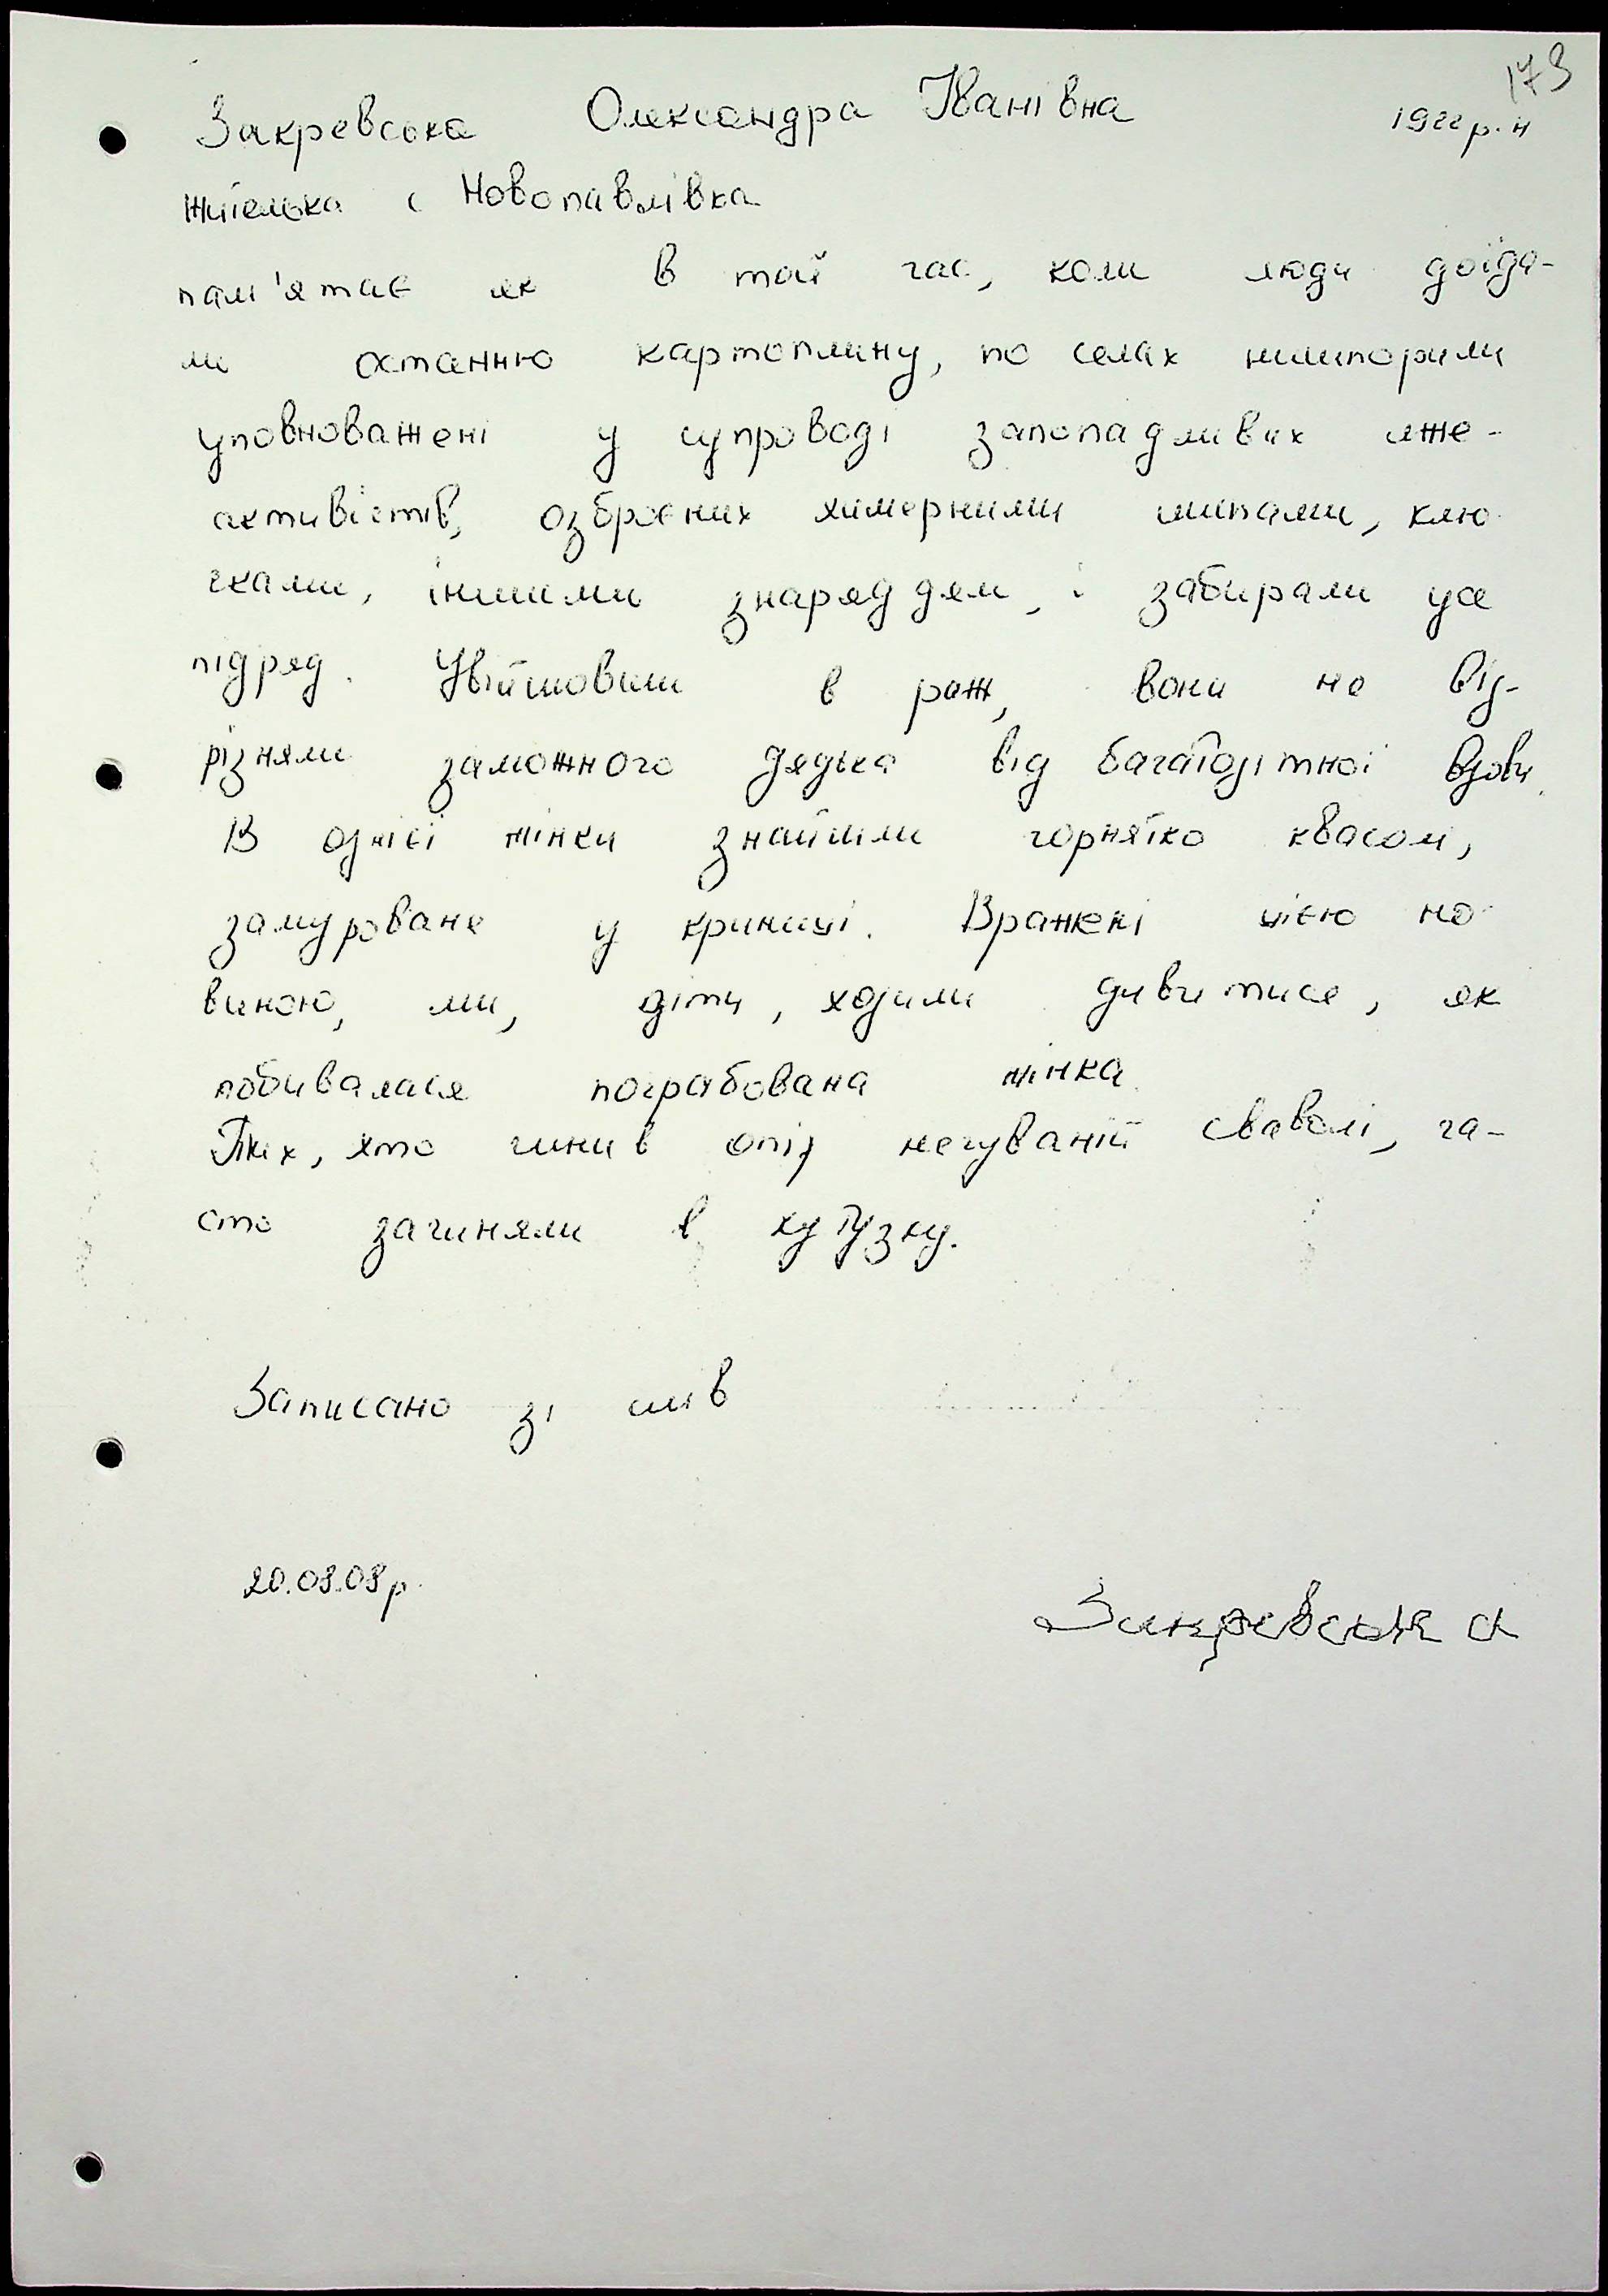 173
Закревська Олександра Іванівна 1922 р. н
жителька с Новопавлівка
пам'ятає як в той час, коли люди доїда-
ли останню картоплину, по селах нишпорили
уповноважені у супроводі запопадливих лже-
активістів, озброєних химерними шипами, клю-
чками, іншими знаряддям, і забирали усе
підряд. Увійшовши в раж, вони не від-
різняли заможного дядька від багатодітної вдови.
В однієї жінки знайшли горнятко квасолі,
замуроване у криниці. Вражені цією но-
виною, ми, діти, ходили дивитися, як
побивалася пограбована жінка.
Тих, хто чинив опір нечуваній сваволі, ча-
сто зачиняли в хутузку.
Записано зі слів
20.08.08р.
Закревська О